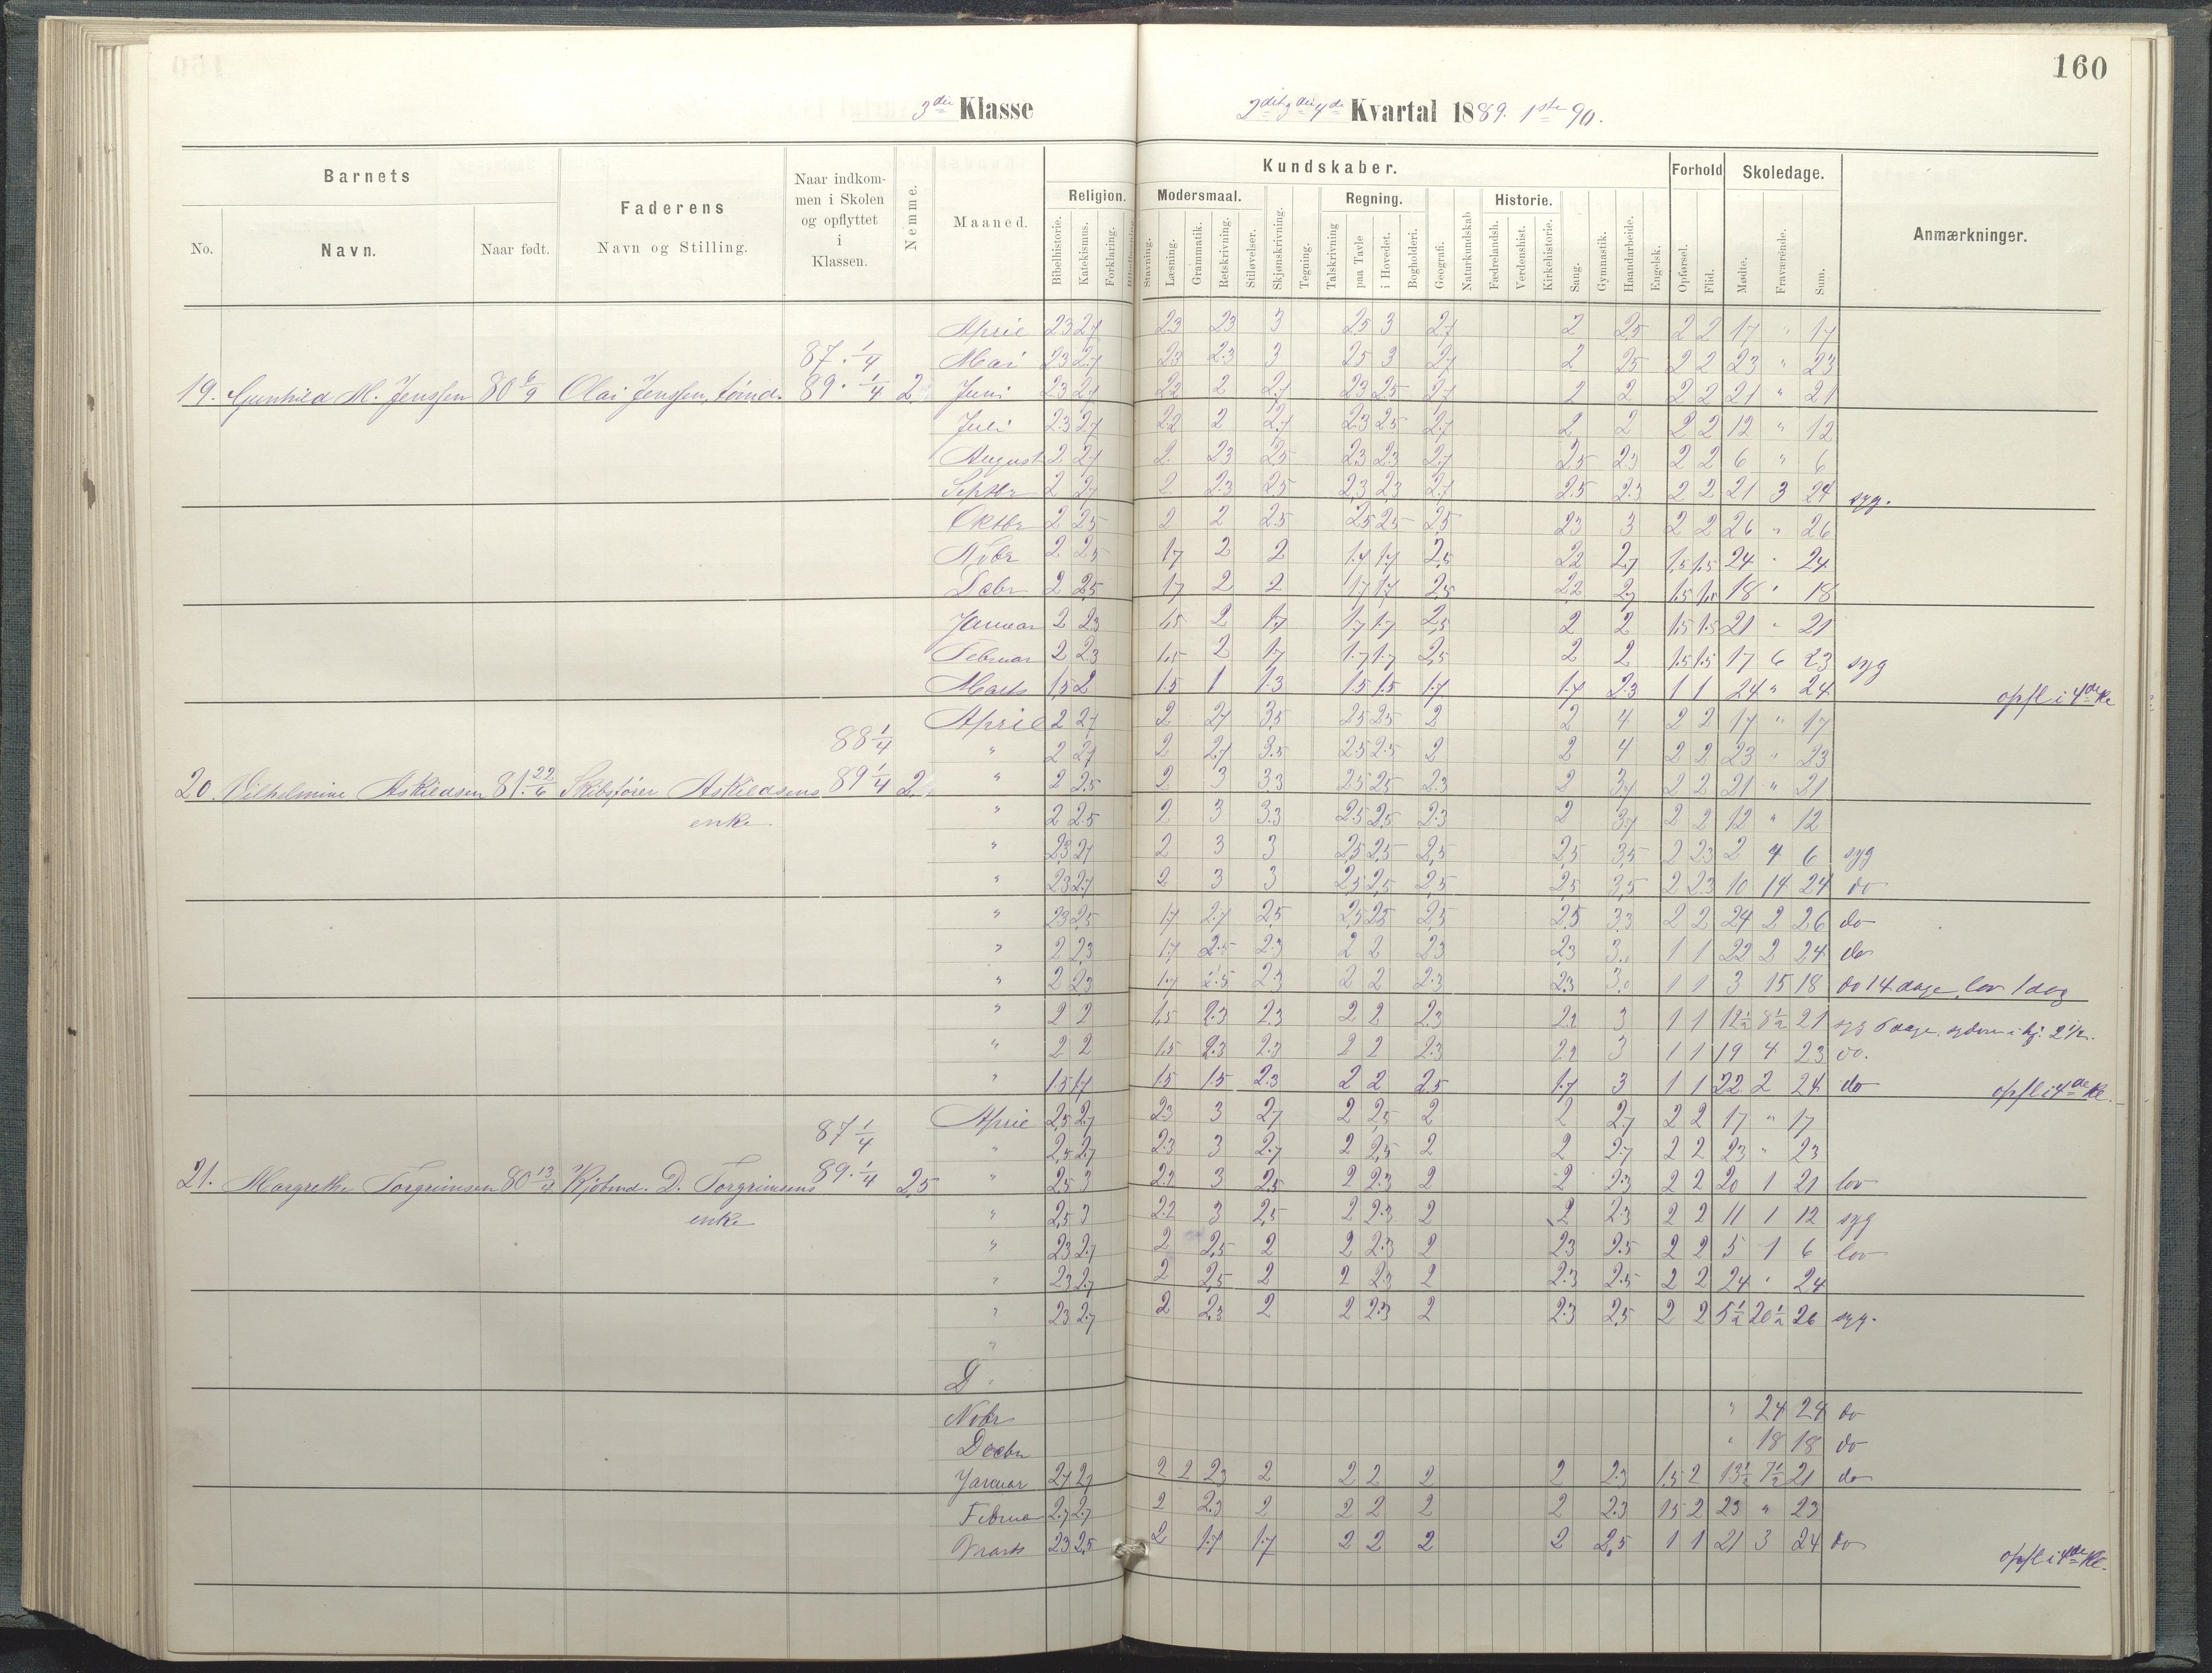 160
3die Klasse
2det 3die 4de Kvartal 1889. 1ste 90.
Barnets
Faderens
Naar indkommen i Skolen og opflyttet i Klassen.
Nemme.
Maaned.
Kundskaber.
Forhold
Skoledage.
Anmærkninger.
No.
Navn.
Naar født.
Navn og Stilling.
Religion.
Modersmaal.
Regning.
Historie.
Bibelhistorie.
Katekismus.
Forklaring.
Stavning.
Læsning.
Grammatik.
Retskrivning.
Stiløvelser.
Skjønskrivning.
Tegning.
Talskrivning
paa Tavle
i Hovedet.
Bogholderi.
Geografi.
Naturkundskab
Fædrelandsh.
Verdenshist.
Kirkehistorie.
Sang.
Gymnastik.
Haandarbeide.
Engelsk.
Opførsel.
Flid.
Mødte.
Fraværende.
Sum.
April 2.3 2.7 2.3 2.3 3 2.5 3 2.7 2 2.5 2 2 17 " 17
87. 1/4 Mai 2.3 2.7 2.3 2.3 3 2.5 3 2.7 2 2.5 2 2 23 " 23
19. Gunhild M. Jenssen 80 6/9 Olai Jenssen, tømd. 89. 1/4 2. Juni 2.3 2.7 2.2 2 2.7 2.3 2.5 2.7 2 2 2 2 21 " 21
Juli 2.3 2.7 2.2 2 2.7 2.3 2.5 2.7 2 2 2 2 12 " 12
August 2 2.7 2. 2.3 2.5 2.3 2.3 2.7 2.5 2.3 2 2 6 " 6
Septbr 2 2.7 2 2.3 2.5 2.3 2.3 2.7 2.5 2.3 2 2 21 3 24 syg.
Oktbr 2 2.5 2 2 2.5 2.5 2.5 2.5 2.3 3 2 2 26 " 26
Nvbr 2 2.5 1.7 2 2 1.7 1.7 2.5 2.2 2.7 1.5 1.5 24 " 24
Decbr 2 2.5 1.7 2 2 1.7 1.7 2.5 2.2 2.7 1.5 1.5 18 " 18
Januar 2 2.3 1.5 2 1.7 1.7 1.7 2.5 2 2 1.5 1.5 21 " 21
Februar 2 2.3 1.5 2 1.7 1.7 1.7 2.5 2 2 1.5 1.5 17 6 23 syg
Marts 1.5 2 1.5 1 1.3 1.5 1.5 1.7 1.7 2.3 1 1 24 " 24 opfl i 4de Kl
April 2 2.7 2 2.7 3.5 2.5 2.5 2 2 4 2 2 17 " 17
88 1/4 " 2 2.7 2 2.7 3.5 2.5 2.5 2 2 4 2 2 23 " 23
20. Vilhelmine Askildsen 81. 22/6 Skibsfører Askildsens 89 1/4 2. " 2 2.5 2 3 3.3 2.5 2.5 2.3 2 3.7 2 2 21 " 21
enke " 2 2.5 2 3 3.3 2.5 2.5 2.3 2 3.7 2 2 12 " 12
" 2.3 2.7 2 3 3 2.5 2.5 2.5 2.5 3.5 2 2.3 2 4 6 syg
" 2.3 2.7 2 3 3 2.5 2.5 2.5 2.5 3.5 2 2.3 10 14 24 do
" 2.3 2.5 1.7 2.7 2.5 2.5 2.5 2.5 2.5 3.3 2 2 24 2 26 do
" 2 2.3 1.7 2.5 2.3 2 2 2.3 2.3 3. 1 1 22 2 24 do
" 2 2.3 1.7 2.5 2.3 2 2 2.3 2.3 3. 1 1 3 15 18 do 14 dage, lov 1 dag
" 2 2 1.5 2.3 2.3 2 2 2.3 2.2 3 1 1 12 1/2 8 1/2 21 syg 6 dage, 2 1/2.
" 2 2 1.5 2.3 2.3 2 2 2.3 2.2 3 1 1 19 4 23 do.
" 1.5 1.7 1.5 1.5 2.3 2 2 2.5 1.7 3 1 1 22 2 24 do opfl i 4de Kl.
April 2.5 2.7 2.3 3 2.7 2 2.5 2 2 2.7 2 2 17 " 17
87 1/4 " 2.5 2.7 2.3 3 2.7 2 2.5 2 2 2.7 2 2 23 " 23
21. Margrethe Torgrimsen 80 13/4 Kjøbmd. D. Torgrimsens 89. 1/4 2.5 " 2.5 3 2.2 3 2.5 2 2.3 2 2 2.3 2 2 20 1 21 lov
enke " 2.5 3 2.2 3 2.5 2 2.3 2 2 2.3 2 2 11 1 12 syg
" 2.3 2.7 2 2.5 2 2 2.3 2 2.3 2.5 2 2 5 1 6 lov
" 2.3 2.7 2 2.5 2 2 2.3 2 2.3 2.5 2 2 24 " 24
" 2.3 2.7 2 2.3 2 2 2.3 2 2.3 2.5 2 2 5 1/2 20 1/2 26 syg.
"
D "
Nobr " 24 24 do
Decbr " 18 18 do
Januar 2.7 2.7 2 2 2.3 2 2 2 2 2 2.3 1.5 2 13 1/2 7 1/2 21 do
Februar 2.7 2.7 2 2.3 2 2 2 2 2 2.3 1.5 2 23 " 23
Marts 2.3 2.5 2 1.7 1.7 2 2 2 2 2.5 1 1 21 3 24 do opfl i 4de Kl.